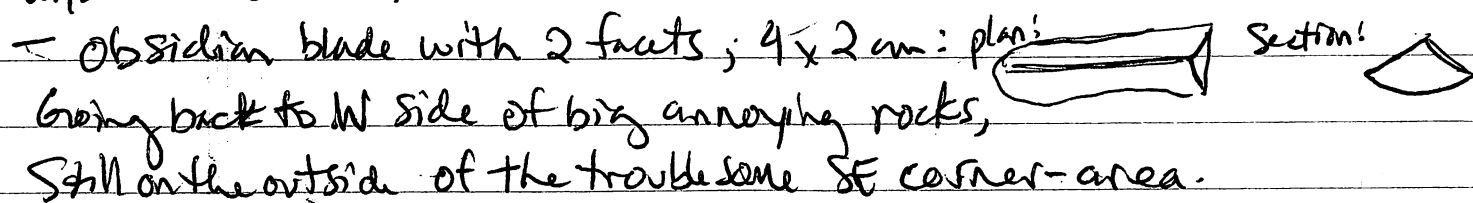 - Obsidian blade with 2 facets; 4x2 cm: plan: Section:
Going back to W side of big annoying rocks,
Still on the outside of the troublesome SE corner-area.